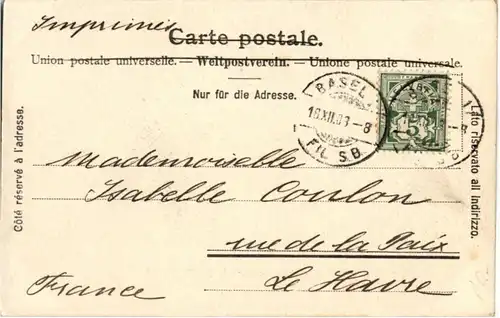 Imprimés
Carte postale.
Union postale universelle. — Weltpostverein. — Unione postale universale.
Nur für die Adresse.
BASEL
FIL. S.B.
Côté réservé à l'adresse.
Lato riservato all indirizzo.
Mademoiselle
Isabelle Coulon
rue de la Paix
Le Havre
France